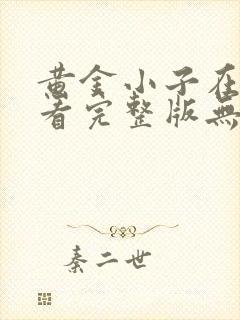 黄金小子在
看完整版無
秦二世